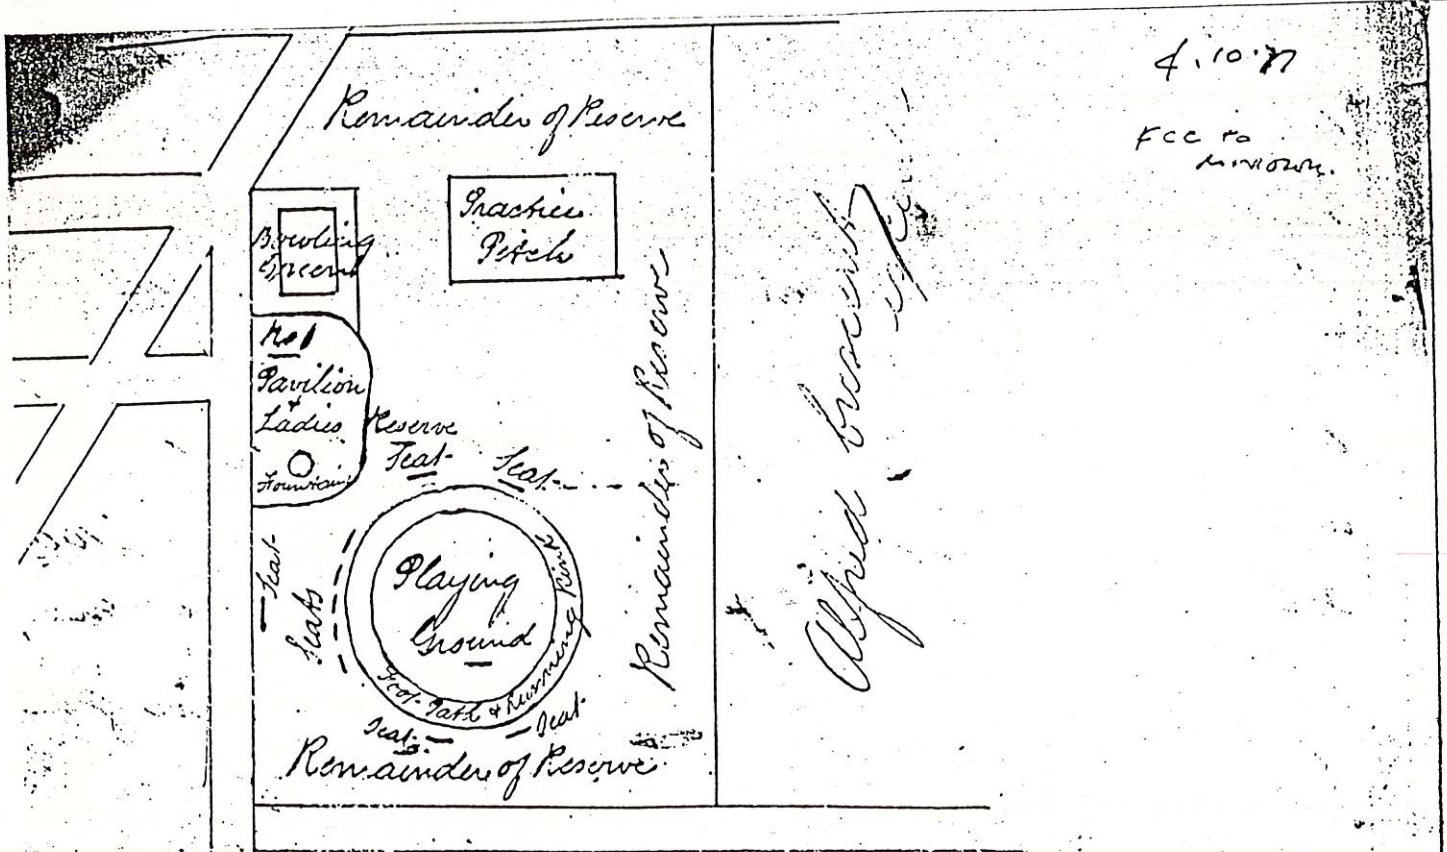 Remainder of Reserve
Practice
Pitch
Bowling
Green
No 1
Pavilion
&
Ladies Reserve
Fountain
Seat
Seat
Remainder of Reserve
Seat
Seats
Playing
Ground
Foot Path & Running Rink
Seat
Seat
Remainder of Reserve
Alfred Crescent
FCC to